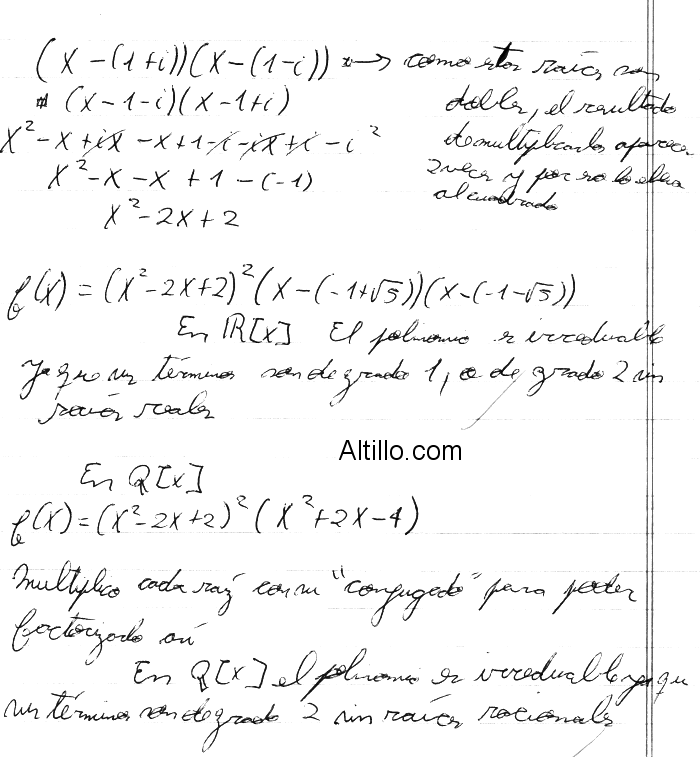 (x-(1+i))(x-(1-i)) → como estas raíces son
(x-1-i)(x-1+i) dobles, el resultado
x²-x+ix-x+1-i-ix+i-i² de multiplicarlas aparece
x²-x-x+1-(-1) 2 veces y por eso lo elevo
x²-2x+2 al cuadrado
f(x)=(x²-2x+2)²(x-(-1+√5))(x-(-1-√5))
En R[x] El polinomio es irreducible
ya que sus términos son de grado 1, o de grado 2 sin
raíces reales
Altillo.com
En Q[x]
f(x)=(x²-2x+2)²(x²+2x-4)
Multiplico cada raíz con su "conjugado" para poder
factorizarlo así
En Q[x] el polinomio es irreducible ya que
sus términos son de grado 2 sin raíces racionales